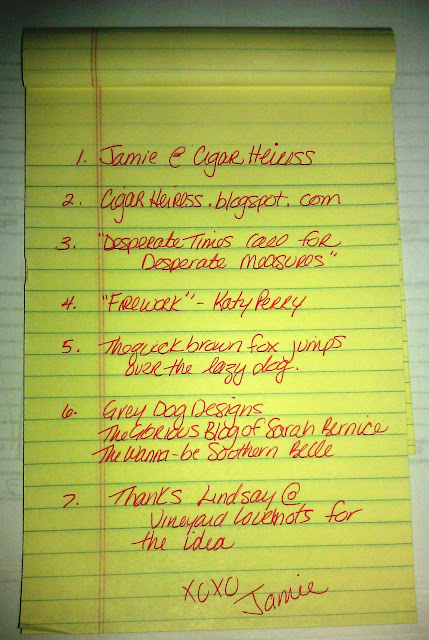 1. Jamie @ Cigar Heiress
2. CigarHeiress.blogspot.com
3. "Desperate Times call for
Desperate Measures"
4. "Firework" - Katy Perry
5. The quick brown fox jumps
over the lazy dog.
6. Grey Dog Designs
The Glorious Blog of Sarah Bernice
The Wanna-be Southern Belle
7. Thanks Lindsay @
Vineyard Loveknots for
the idea
XOXO
Jamie